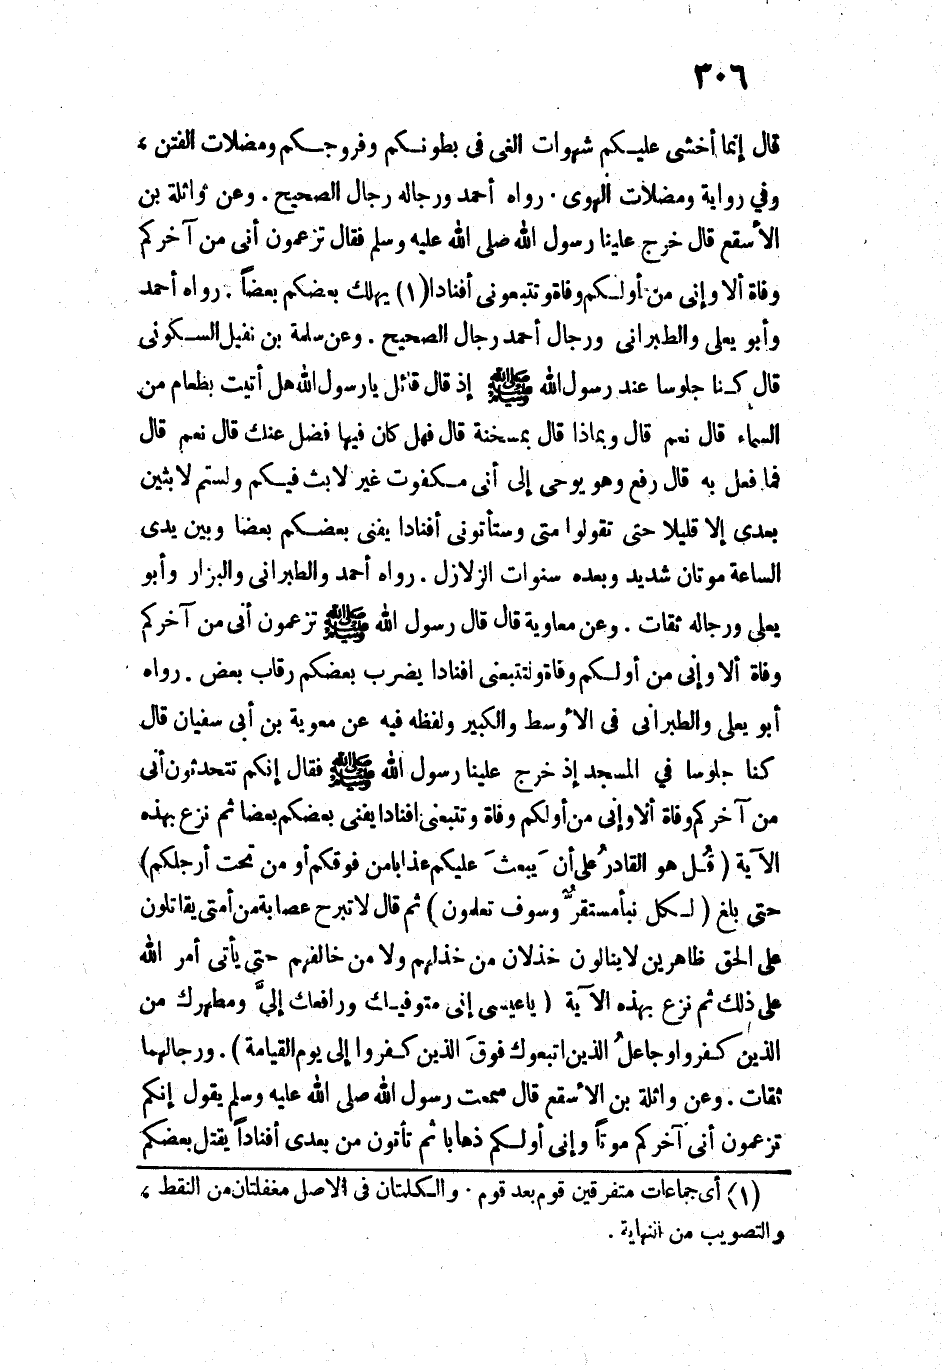 ٣٠٦
قال إنما أخشى عليكم شهوات الغى فى بطونكم وفروجكم ومضلات الفتن ،
وفي رواية ومضلات الهوى . رواه أحمد ورجاله رجال الصحيح . وعن وائلة بن
الأسقع قال خرج علينا رسول الله صلى الله عليه وسلم فقال تزعمون أنى من آخركم
وفاة ألا وإنى من أولكم وفاة وتتبعونى أفنادا (١) يهلك بعضكم بعضاً . رواه أحمد
وأبو يعلى والطبرانى ورجال أحمد رجال الصحيح . وعن سلمة بن نفيل السكونى
قال كنا جلوسا عند رسول الله ﷺ إذ قال قائل يا رسول الله هل أتيت بطعام من
السماء قال نعم قال وبماذا قال بمسخنة قال فهل كان فيها فضل عنك قال نعم قال
فما فعل به قال رفع وهو يوحى إلى أنى مكفوت غير لابث فيكم ولستم لابثين
بعدى إلا قليلا حتى تقولوا متى وستأتونى أفنادا يفنى بعضكم بعضا وبين يدى
الساعة موتان شديد وبعده سنوات الزلازل . رواه أحمد والطبرانى والبزار وأبو
يعلى ورجاله ثقات . وعن معاوية قال قال رسول الله ﷺ تزعمون أنى من آخركم
وفاة ألا وإنى من أولكم وفاة ولتتبعنى افنادا يضرب بعضكم رقاب بعض . رواه
أبو يعلى والطبرانى فى الأوسط والكبير ولفظه فيه عن معوية بن أبى سفيان قال
كنا جلوسا في المسجد إذ خرج علينا رسول الله ﷺ فقال إنكم تتحدثون أنى
من آخركم وفاة ألا وإنى من أولكم وفاة وتتبعنى افنادا يفنى بعضكم بعضا ثم نزع بهذه
الآية ( قُل هو القادرُ على أن يَبعثَ عليكم عذابا من فوقكم أو من تحت أرجلكم)
حتى بلغ ( لكل نبأ مستقرٌّ وسوف تعلمون ) ثم قال لا تبرح عصابة من أمتى يقاتلون
على الحق ظاهرين لا ينالون خذلان من خذلهم ولا من خالفهم حتى يأتى أمر الله
على ذلك ثم نزع بهذه الآية ( يا عيسى إنى متوفيك ورافعك إليَّ ومطهرك من
الذين كفروا وجاعلُ الذين اتبعوك فوقَ الذين كفروا إلى يوم القيامة ) . ورجالهما
ثقات . وعن واثلة بن الأسقع قال سمعت رسول الله صلى الله عليه وسلم يقول إنكم
تزعمون أنى آخركم موتاً وإنى أولكم ذهابا ثم تأتون من بعدى أفناداً يقتل بعضكم
(١) أى جماعات متفرقين قوم بعد قوم . والكلمتان فى الاصل مغفلتان من النقط ،
والتصويب من النهاية .